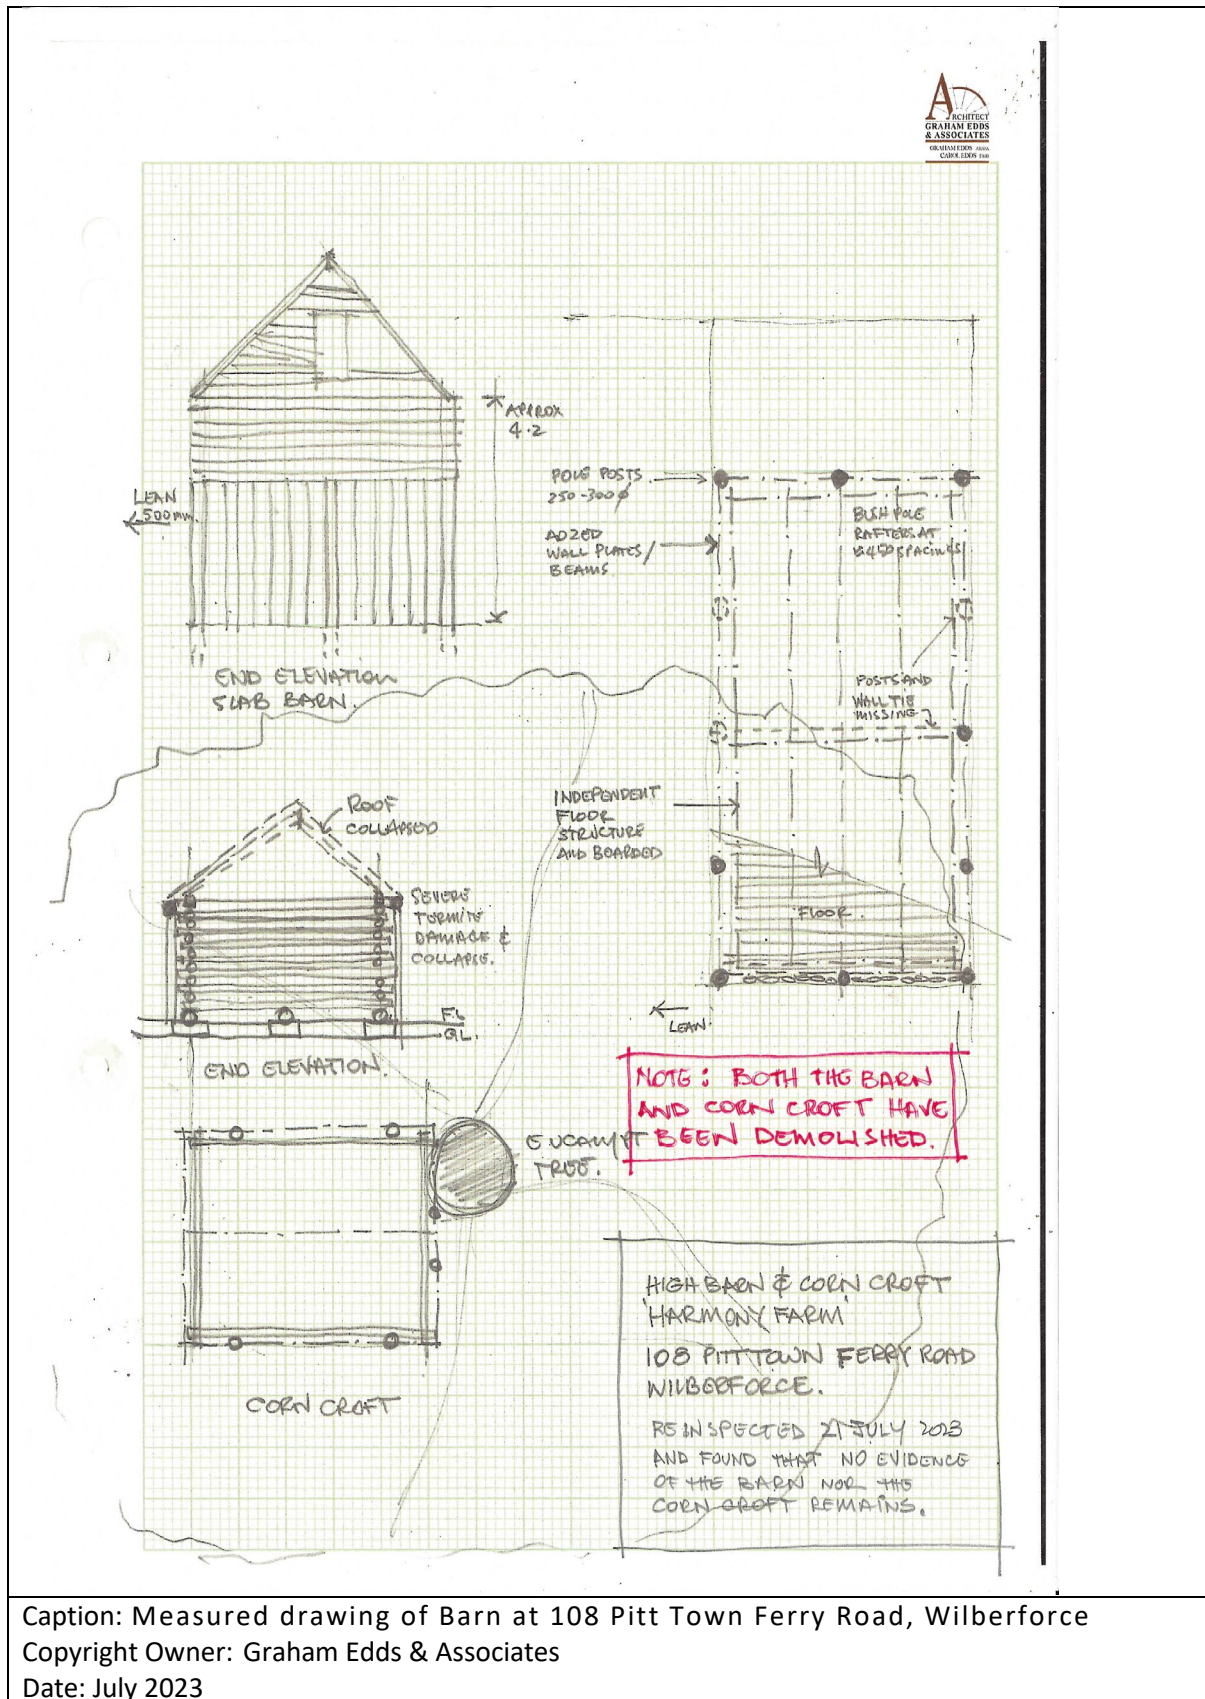 ARCHITECT
GRAHAM EDDS
& ASSOCIATES
GRAHAM EDDS
CAROL EDDS
APPROX
4.2
LEAN
500mm
END ELEVATION
SLAB BARN.
POLE POSTS
250-300φ
ADZED
WALL PLATES/
BEAMS
BUSH POLE
RAFTERS AT
SPACINGS
POSTS AND
WALL TIE
MISSING
INDEPENDENT
FLOOR
STRUCTURE
AND BOARDED
FLOOR
LEAN
ROOF
COLLAPSED
SEVERE
TERMITE
DAMAGE &
COLLAPSE.
F.L
G.L.
END ELEVATION.
NOTE: BOTH THE BARN
AND CORN CROFT HAVE
BEEN DEMOLISHED.
EUCALYPT
TREE.
CORN CROFT
HIGH BARN & CORN CROFT
'HARMONY FARM'
108 PITT TOWN FERRY ROAD
WILBERFORCE.
REINSPECTED 21 JULY 2023
AND FOUND THAT NO EVIDENCE
OF THE BARN NOR THE
CORN CROFT REMAINS.
Caption: Measured drawing of Barn at 108 Pitt Town Ferry Road, Wilberforce
Copyright Owner: Graham Edds & Associates
Date: July 2023